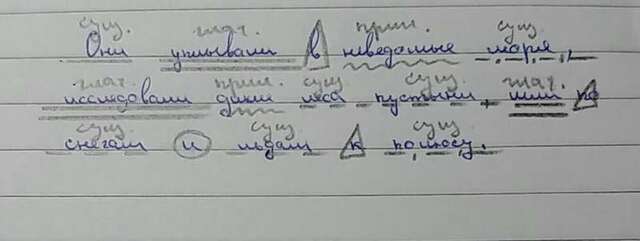 сущ. глаг. прил. сущ.
Они уплывали в неведомые моря,
глаг. прил. сущ сущ. глаг.
исследовали дикие леса, пустыни, шли по
сущ. сущ сущ
снегам и льдам к полюсу.